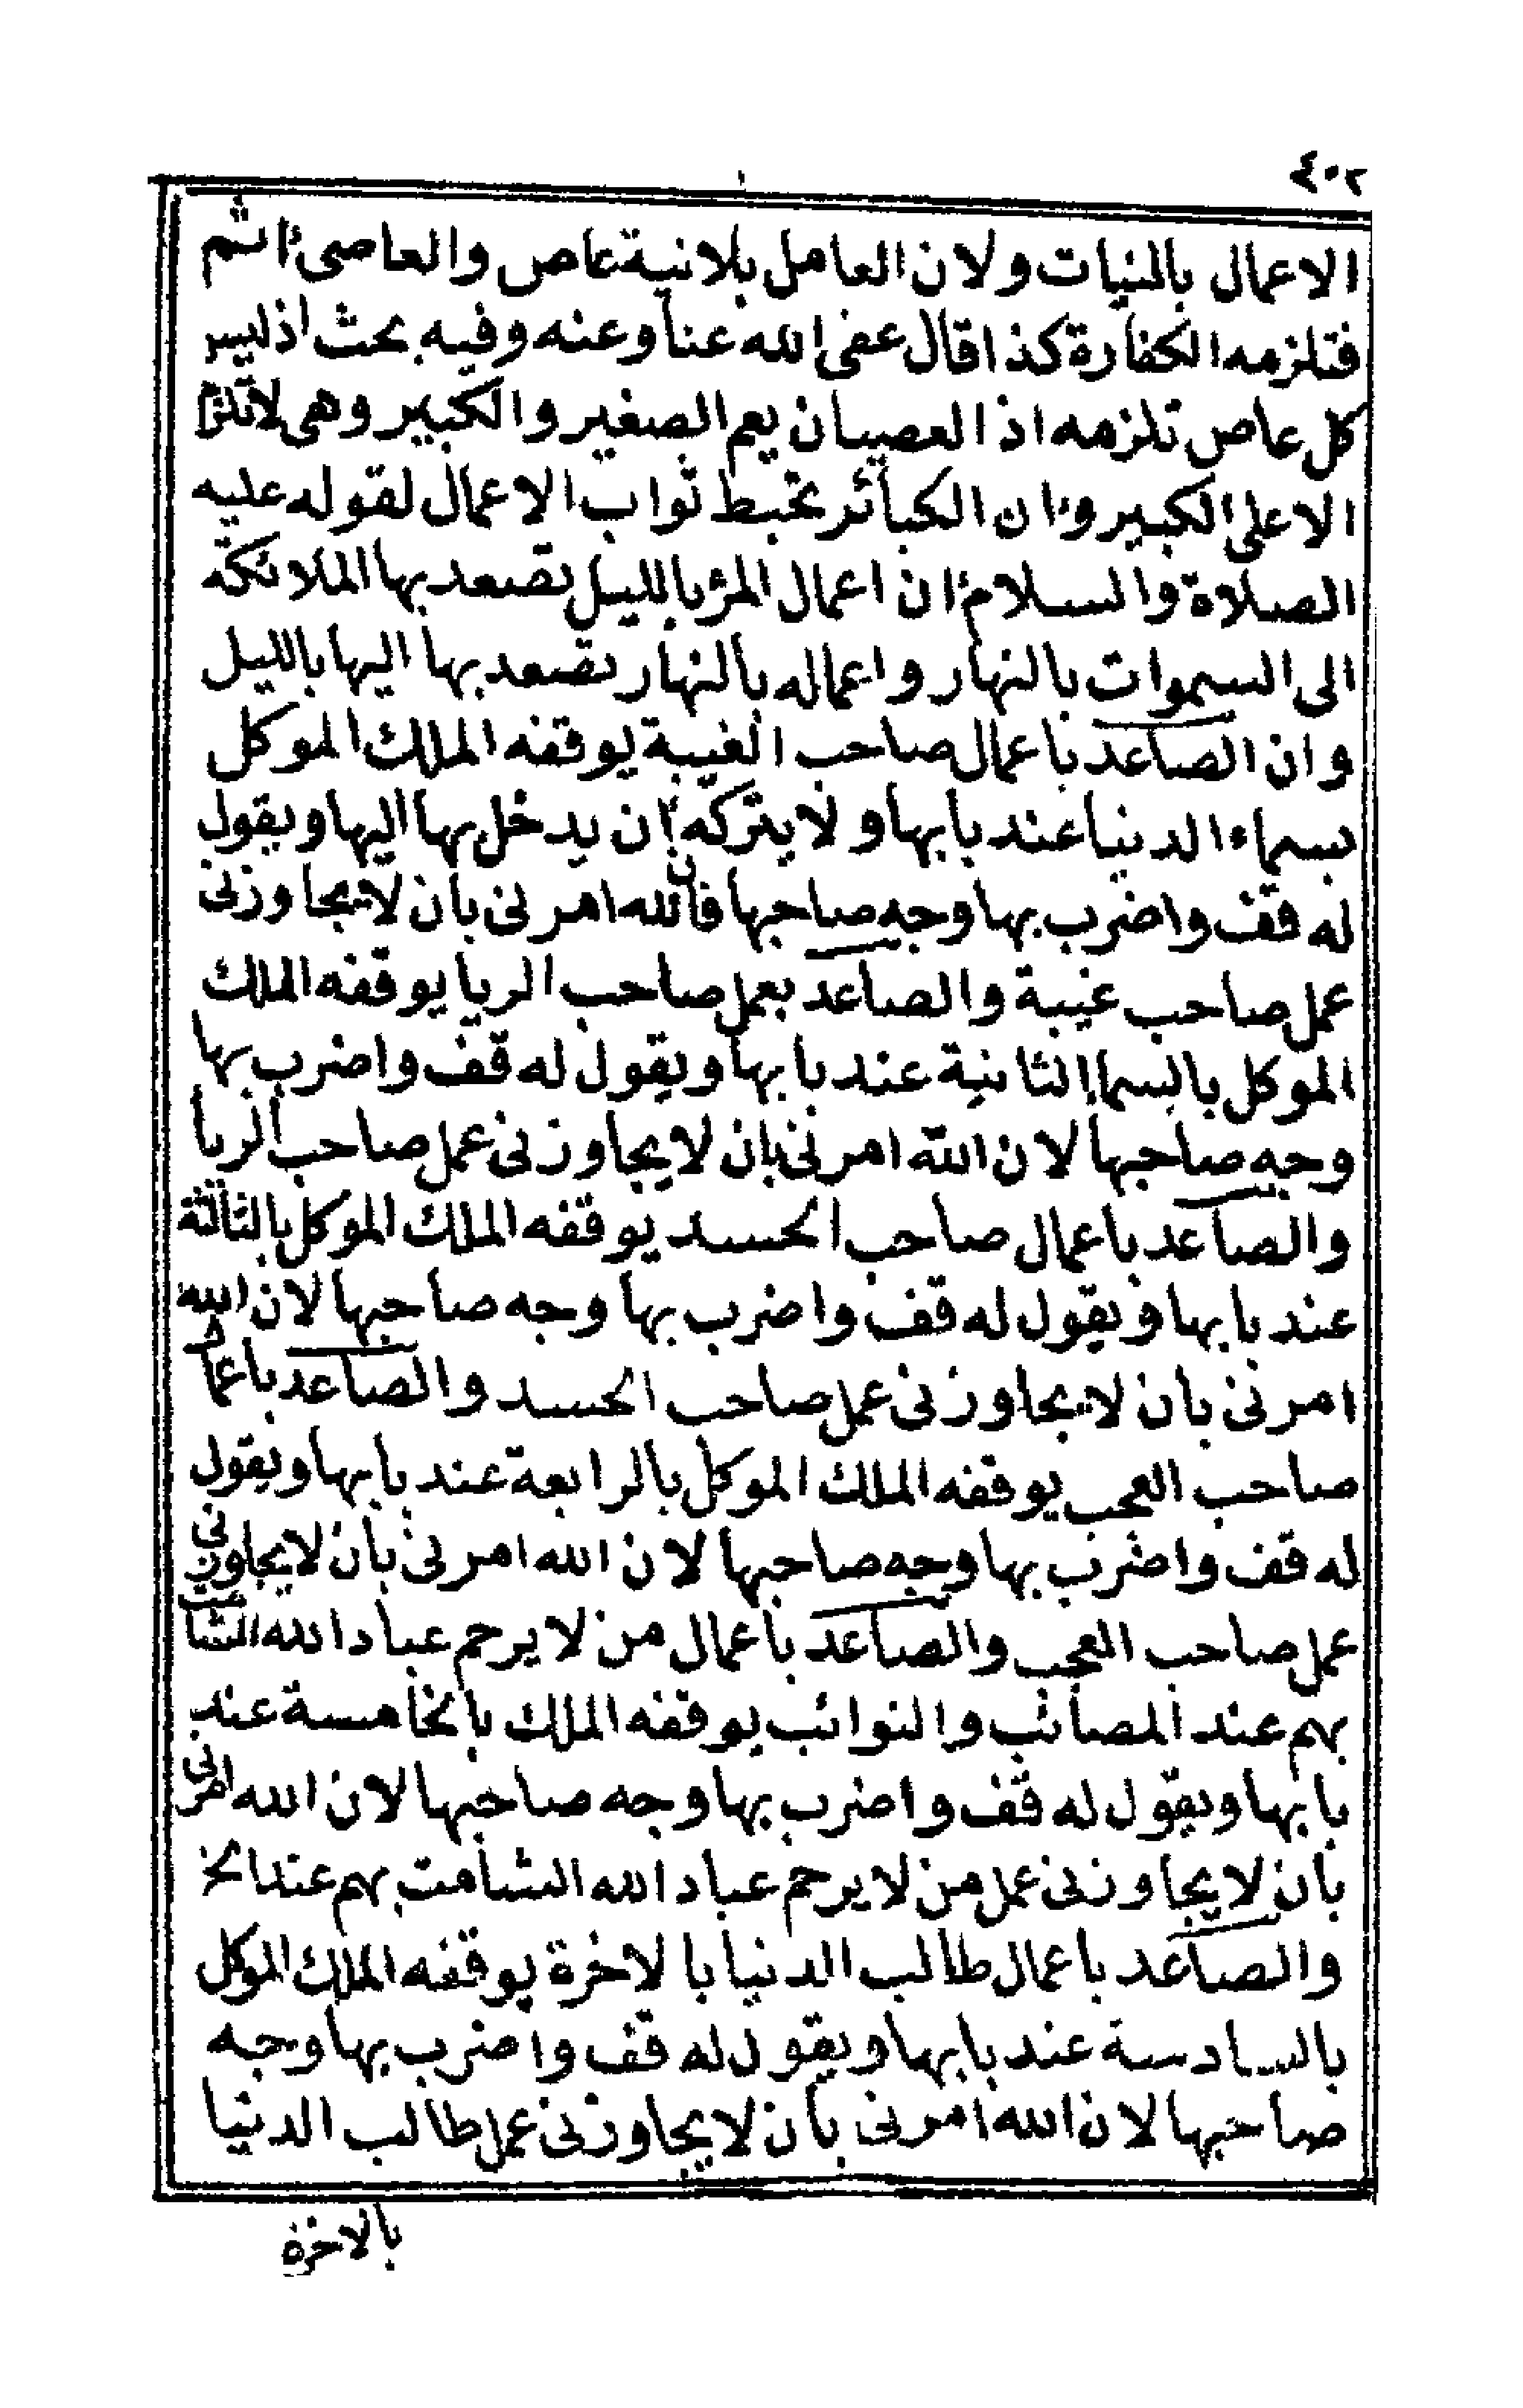 ٤٠٢
الاعمال بالنيات ولان العامل بلانية عاص والعاصى اثم
فتلزمه الكفارة كذا قال عفى الله عنا وعنه وفيه بحث اذ ليس
كل عاص تلزمه اذ العصيان يعم الصغير والكبير وهى لا تلزم
الا على الكبير وان الكبائر تحبط ثواب الاعمال لقوله عليه
الصلاة والسلام ان اعمال المرء بالليل تصعد بها الملائكة
الى السموات بالنهار واعماله بالنهار تصعد بها اليها بالليل
وان الصاعد باعمال صاحب الغيبة يوقفه الملك الموكل
بسماء الدنيا عند بابها ولا يتركه ان يدخل بها اليها ويقول
له قف واضرب بها وجه صاحبها فان الله امرنى بان لا يجاوزنى
عمل صاحب غيبة والصاعد بعمل صاحب الريا يوقفه الملك
الموكل بالسما الثانية عند بابها ويقول له قف واضرب بها
وجه صاحبها لان الله امرنى بان لا يجاوزنى عمل صاحب الريا
والصاعد باعمال صاحب الحسد يوقفه الملك الموكل بالثالثة
عند بابها ويقول له قف واضرب بها وجه صاحبها لان الله
امرنى بان لا يجاوزنى عمل صاحب الحسد والصاعد باعمال
صاحب العجب يوقفه الملك الموكل بالرابعة عند بابها ويقول
له قف واضرب بها وجه صاحبها لان الله امرنى بان لا يجاوزنى
عمل صاحب العجب والصاعد باعمال من لا يرحم عباد الله الشامت
بهم عند المصائب والنوائب يوقفه الملك بالخامسة عند
بابها ويقول له قف واضرب بها وجه صاحبها لان الله امرنى
بان لا يجاوزنى عمل من لا يرحم عباد الله الشامت بهم عند الخ
والصاعد باعمال طالب الدنيا بالاخرة يوقفه الملك الموكل
بالسادسة عند بابها ويقول له قف واضرب بها وجه
صاحبها لان الله امرنى بان لا يجاوزنى عمل طالب الدنيا
بالاخرة